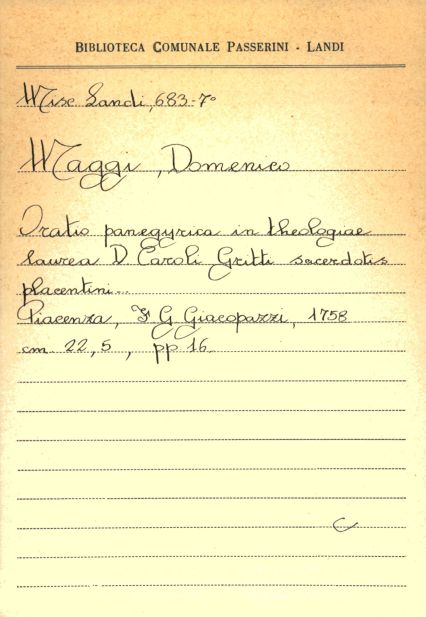 BIBLIOTECA COMUNALE PASSERINI - LANDI
Misc Landi, 683-7°
Maggi, Domenico
Oratio panegyrica in theologiae
laurea D. Caroli Gritti sacerdotis
placentini...
Piacenza, F G Giacopazzi, 1758
cm. 22,5, pp 16.
C